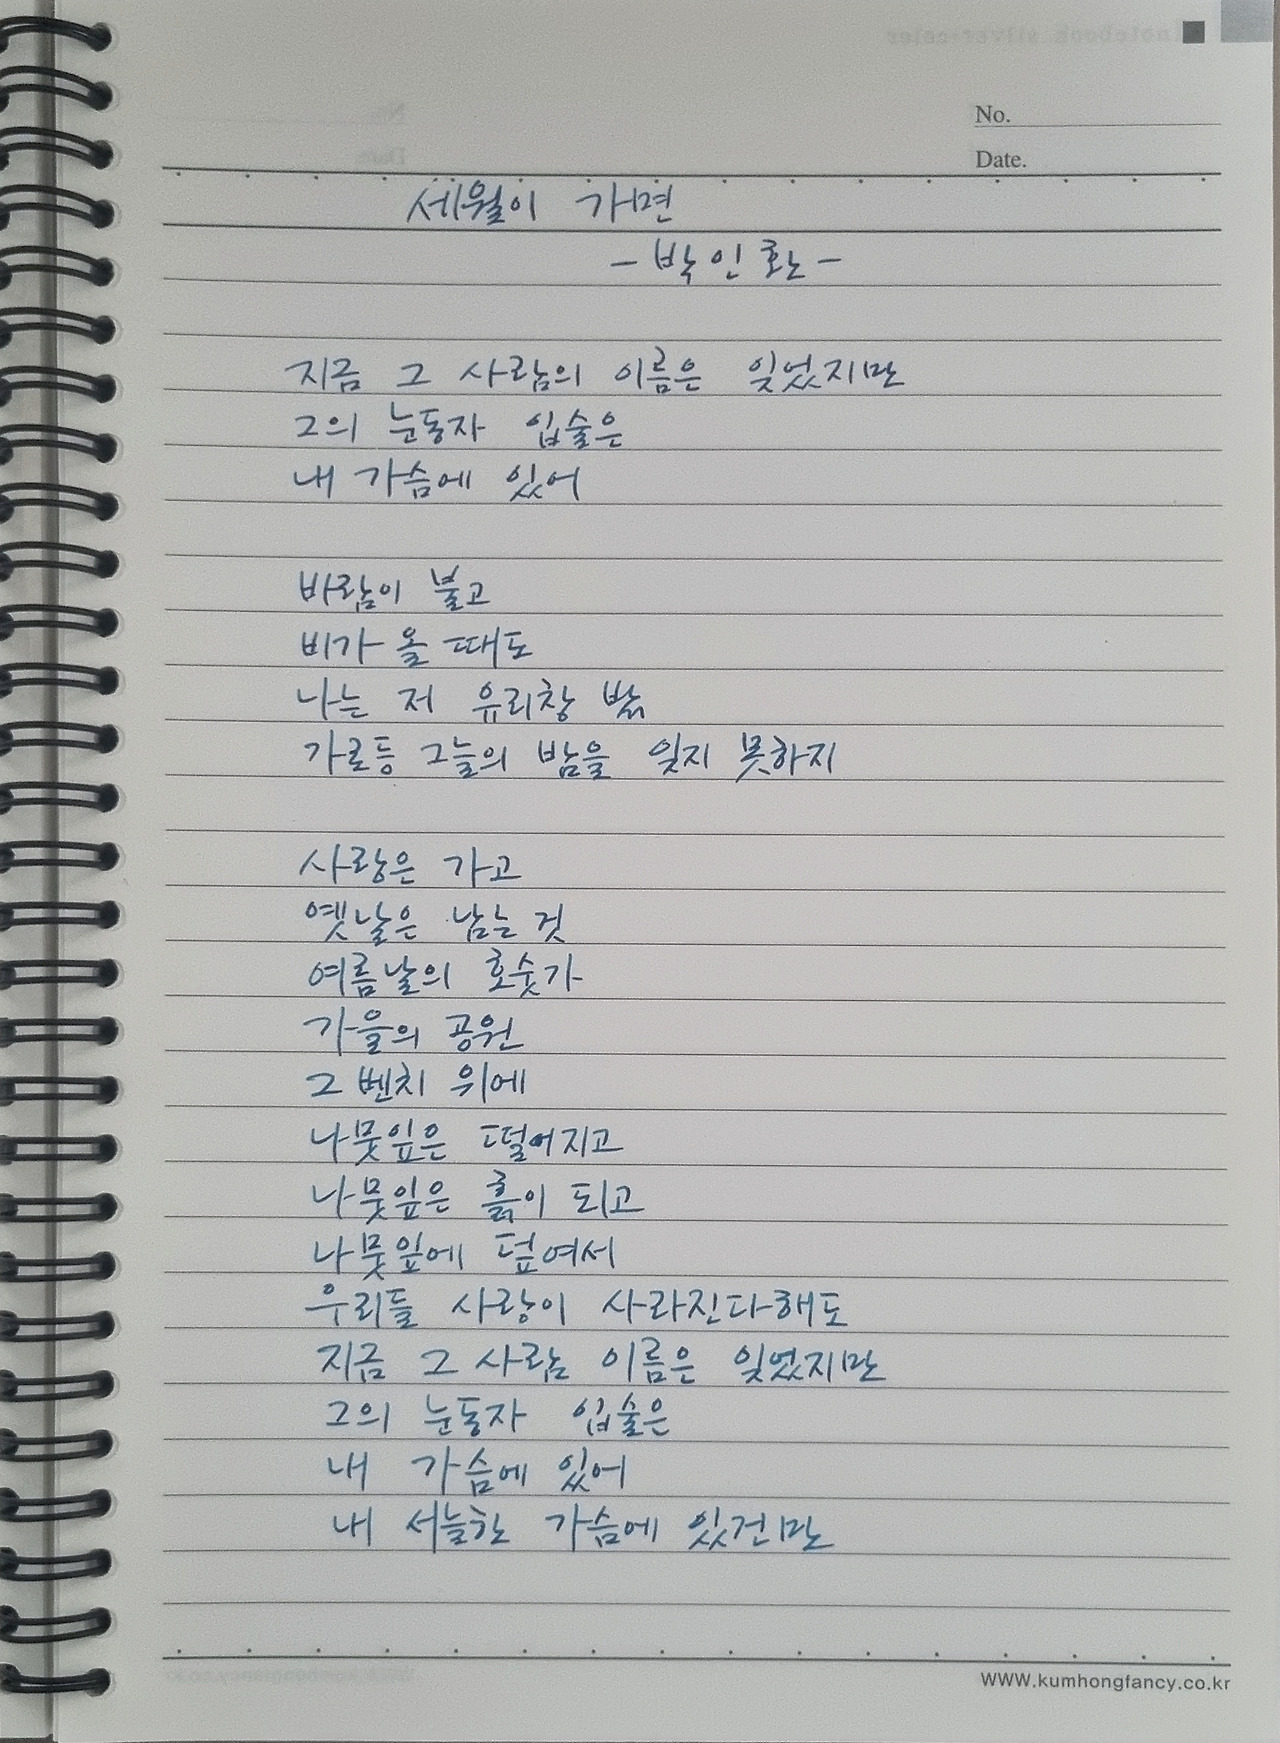 No.
Date.
세월이 가면
- 박인환 -
지금 그 사람의 이름은 잊었지만
그의 눈동자 입술은
내 가슴에 있어
바람이 불고
비가 올 때도
나는 저 유리창 밖
가로등 그늘의 밤을 잊지 못하지
사랑은 가고
옛날은 남는 것
여름날의 호숫가
가을의 공원
그 벤치 위에
나뭇잎은 떨어지고
나뭇잎은 흙이 되고
나뭇잎에 덮여서
우리들 사랑이 사라진다해도
지금 그 사람 이름은 잊었지만
그의 눈동자 입술은
내 가슴에 있어
내 서늘한 가슴에 있건만
WWW.kumhongfancy.co.kr